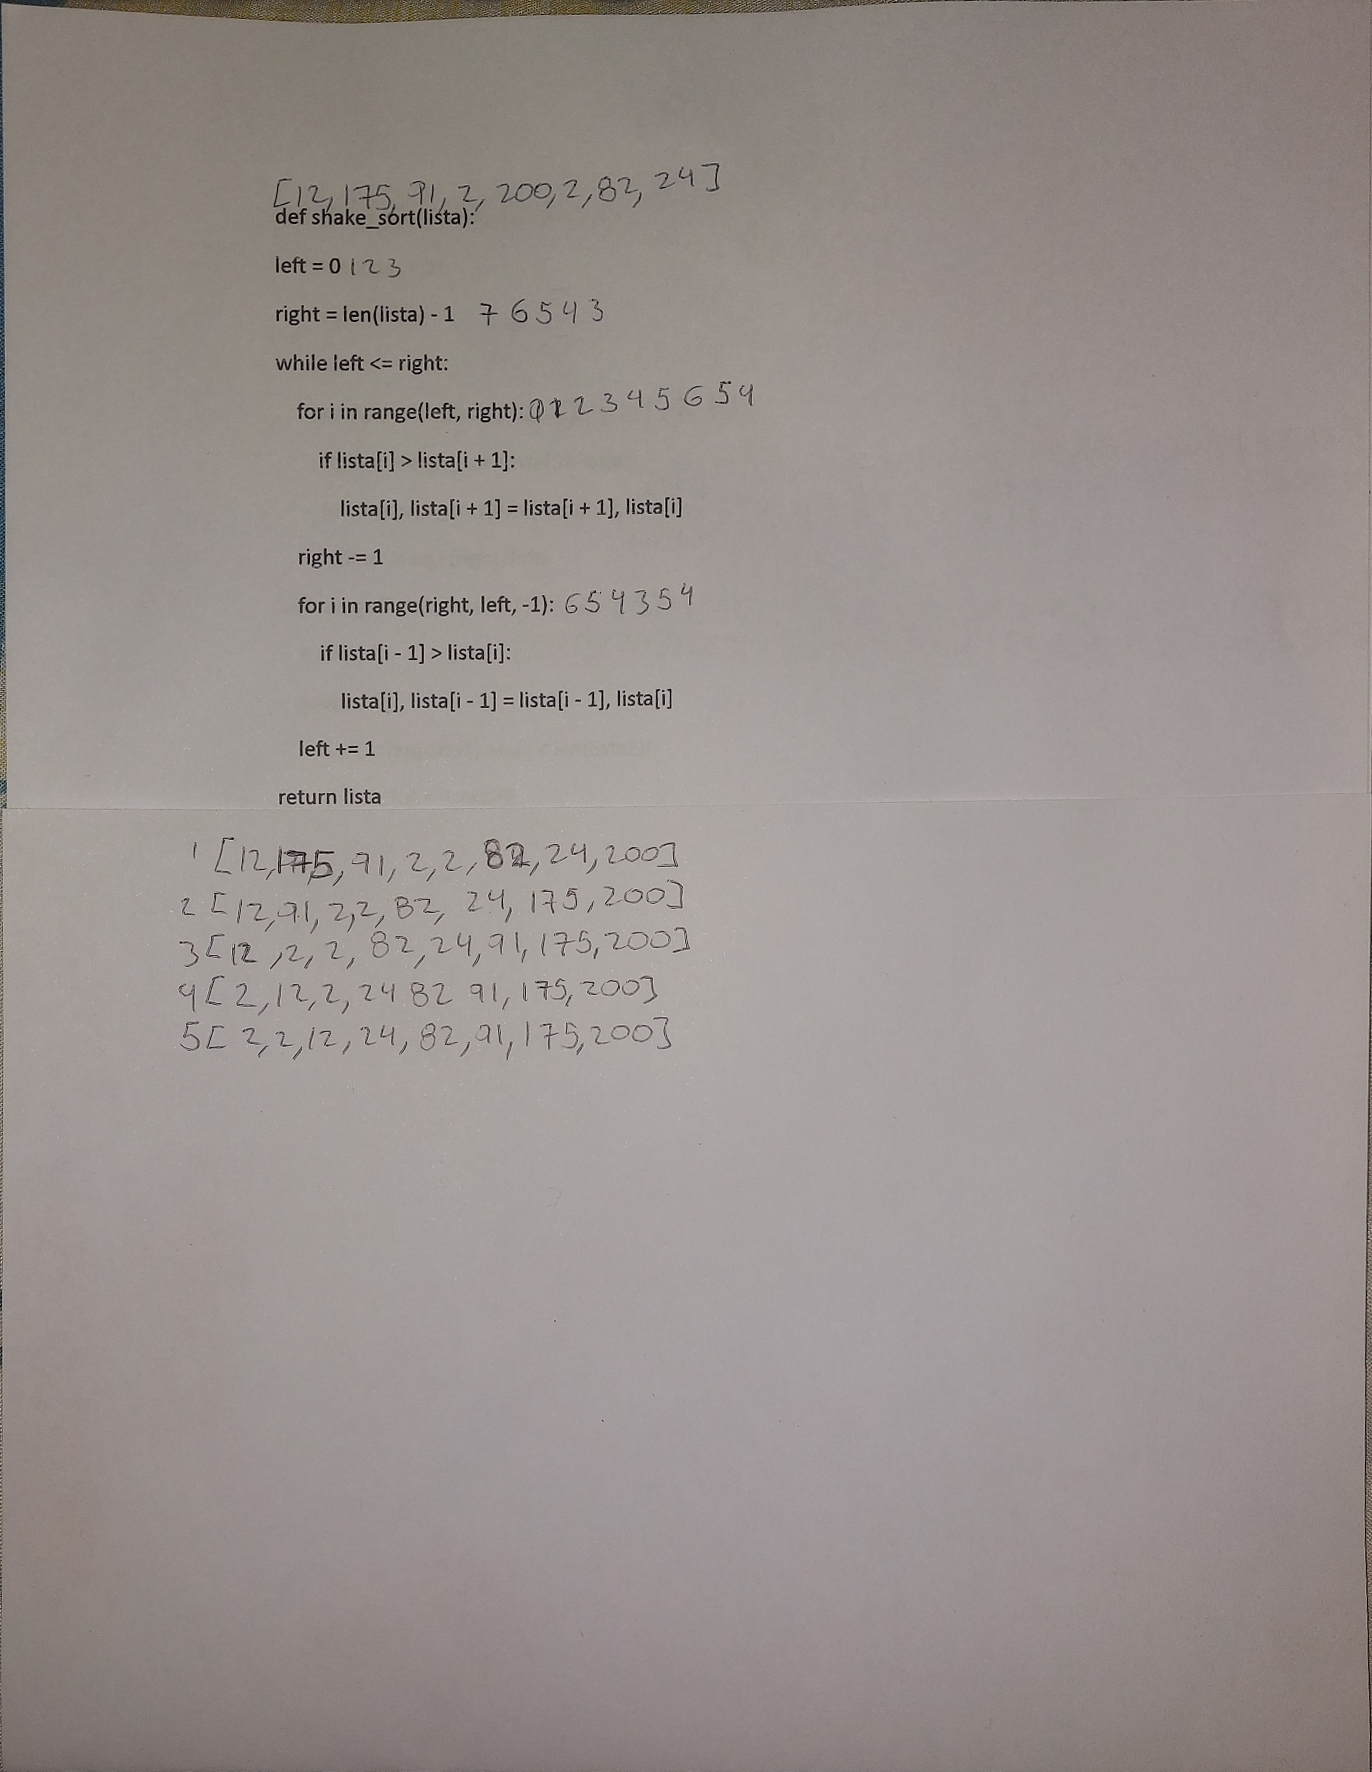 [12, 175, 91, 2, 200, 2, 82, 24]
def shake_sort(lista):
left = 0 1 2 3
right = len(lista) - 1 7 6 5 4 3
while left <= right:
for i in range(left, right): 0 1 2 3 4 5 6 5 4
if lista[i] > lista[i + 1]:
lista[i], lista[i + 1] = lista[i + 1], lista[i]
right -= 1
for i in range(right, left, -1): 6 5 4 3 5 4
if lista[i - 1] > lista[i]:
lista[i], lista[i - 1] = lista[i - 1], lista[i]
left += 1
return lista
1 [12, 175, 91, 2, 2, 82, 24, 200]
2 [12, 91, 2, 2, 82, 24, 175, 200]
3 [12, 2, 2, 82, 24, 91, 175, 200]
4 [2, 12, 2, 24 82 91, 175, 200]
5 [2, 2, 12, 24, 82, 91, 175, 200]